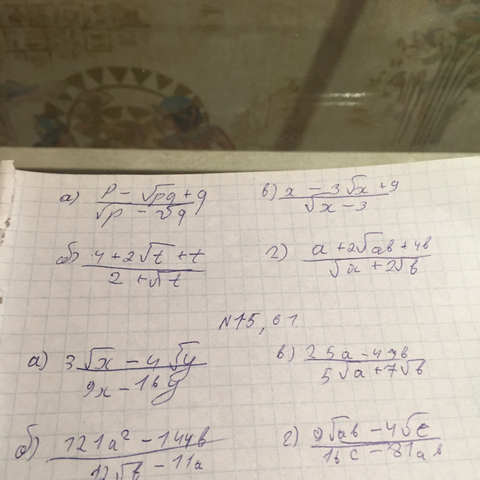 а) (p - √pq + q)/(√p - √q) в) (x - 3√x + 9)/(√x - 3)
б) (4 + 2√t + t)/(2 + √t) г) (a + 2√ab + 4b)/(√a + 2√b)
N15,61
а) (3√x - 4√y)/(9x - 16y) в) (25a - 49b)/(5√a + 7√b)
б) (121a² - 144b)/(12√b - 11a) г) (9√ab - 4√c)/(16c - 81ab)